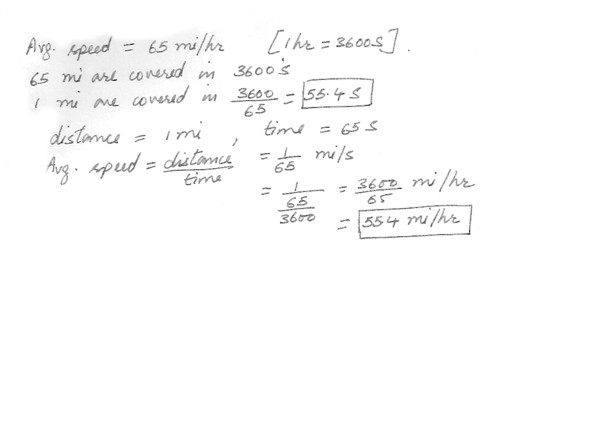 Avg. speed = 65 mi/hr [1hr = 3600S].
65 mi are covered in 3600s
1 mi are covered in 3600/65 = 55.4 S
distance = 1mi , time = 65 S
Avg. speed = distance/time = 1/65 mi/s
= 1/(65/3600) = 3600/65 mi/hr
= 554 mi/hr